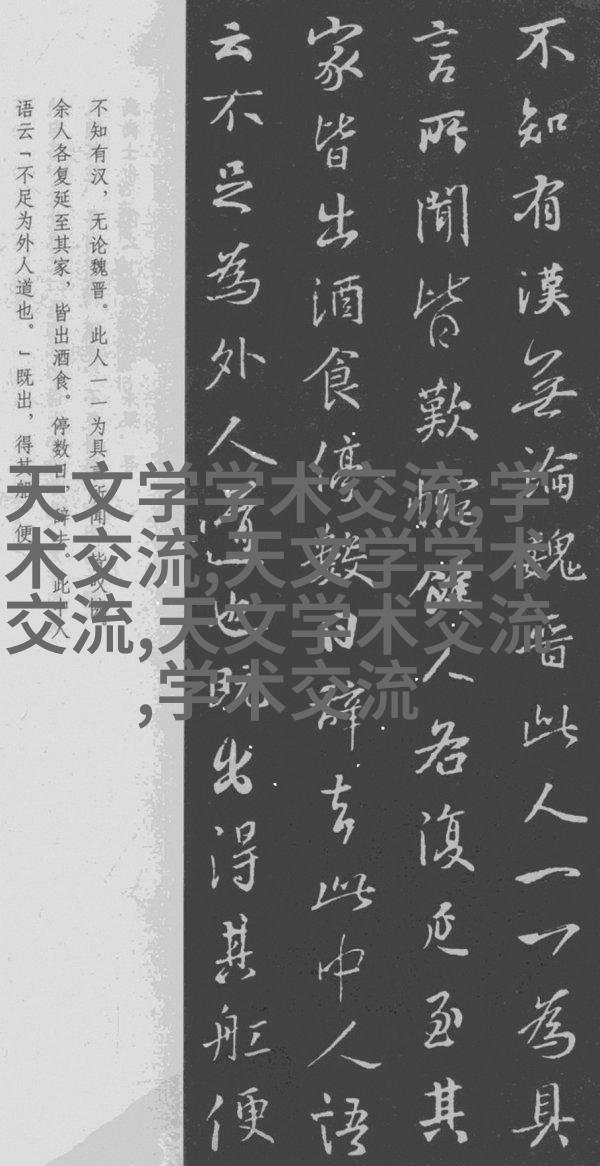 不知有漢無論魏晋此人一一為具
言所聞皆歎惋餘人各復延至其
家皆出酒食停數日辞去此中人語
云不足為外人道也既出得其舡便
不知有汉，无论魏晋。此人一一为具言所闻，皆叹
余人各复延至其家，皆出酒食。停数日，辞去。此中人
语云「不足为外人道也。」既出，得其船，便
天文学学术交流,学
术交流,天文学学术
交流,天文学术交流
,学术交流